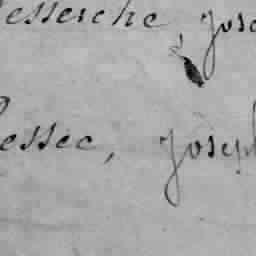 esserche Jose
essec, Joseph